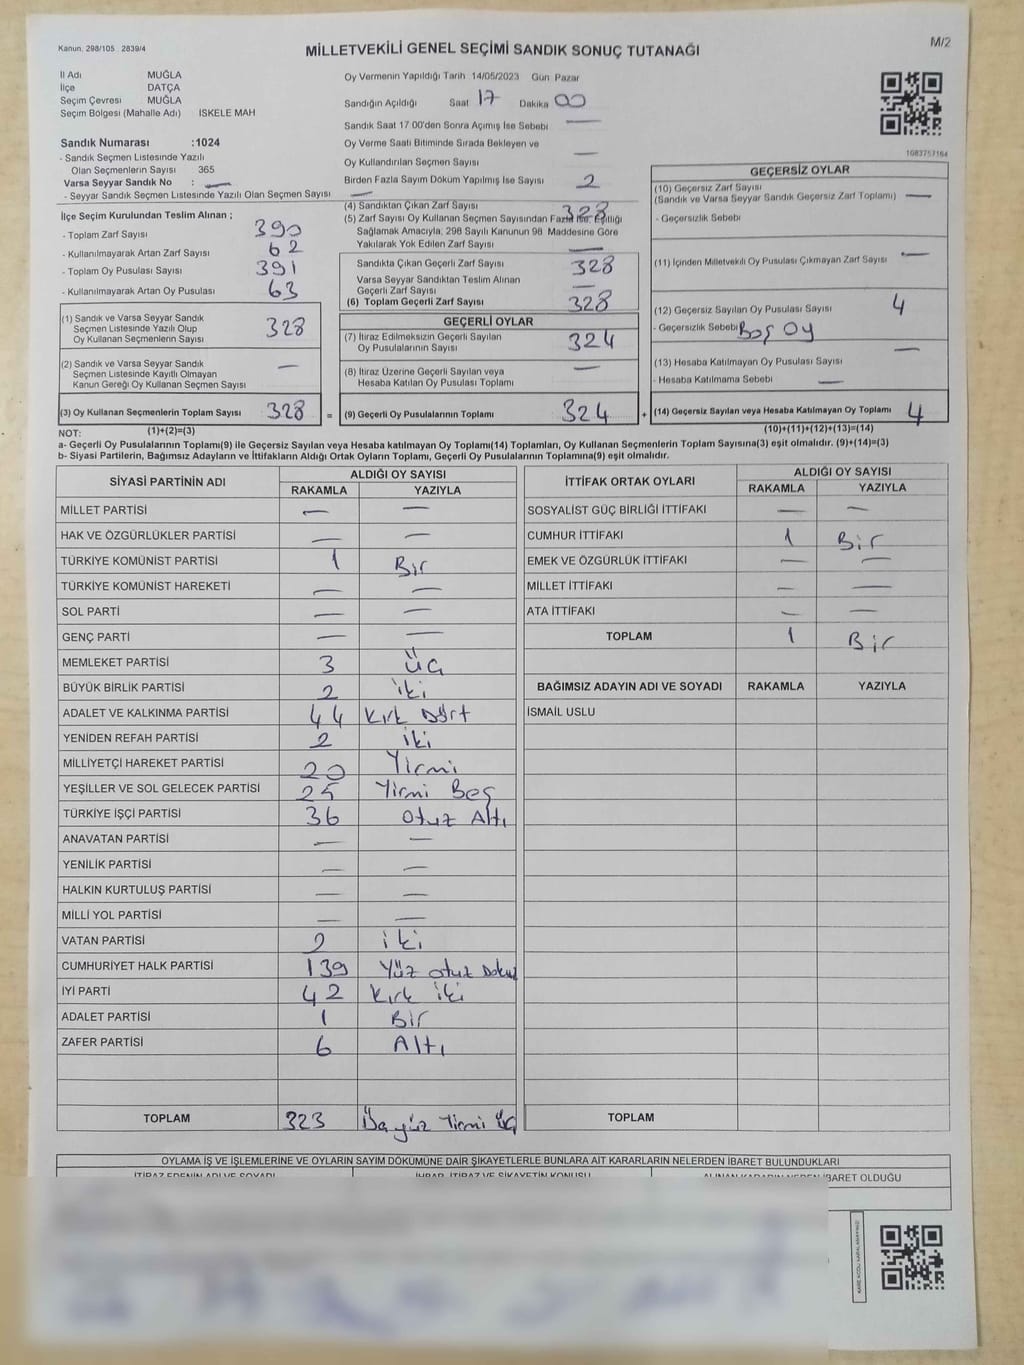 Kanun, 298/105 2839/4
MİLLETVEKİLİ GENEL SEÇİMİ SANDIK SONUÇ TUTANAĞI
M/2
İl Adı MUĞLA
İlçe DATÇA
Seçim Çevresi MUĞLA
Seçim Bölgesi (Mahalle Adı) İSKELE MAH
Sandık Numarası :1024
- Sandık Seçmen Listesinde Yazılı
Olan Seçmenlerin Sayısı 365
Varsa Seyyar Sandık No : —
- Seyyar Sandık Seçmen Listesinde Yazılı Olan Seçmen Sayısı —
İlçe Seçim Kurulundan Teslim Alınan ;
- Toplam Zarf Sayısı 390
- Kullanılmayarak Artan Zarf Sayısı 62
- Toplam Oy Pusulası Sayısı 391
- Kullanılmayarak Artan Oy Pusulası 63
(1) Sandık ve Varsa Seyyar Sandık
Seçmen Listesinde Yazılı Olup
Oy Kullanan Seçmenlerin Sayısı 328
(2) Sandık ve Varsa Seyyar Sandık
Seçmen Listesinde Kayıtlı Olmayan
Kanun Gereği Oy Kullanan Seçmen Sayısı —
(3) Oy Kullanan Seçmenlerin Toplam Sayısı 328 =
(1)+(2)=(3)
Oy Vermenin Yapıldığı Tarih 14/05/2023 Gün Pazar
Sandığın Açıldığı Saat 17 Dakika 00
Sandık Saat 17 00'den Sonra Açımış İse Sebebi —
Oy Verme Saati Bitiminde Sırada Bekleyen ve
Oy Kullandırılan Seçmen Sayısı —
Birden Fazla Sayım Döküm Yapılmış İse Sayısı 2
(4) Sandıktan Çıkan Zarf Sayısı 328
(5) Zarf Sayısı Oy Kullanan Seçmen Sayısından Fazla İse, Eşitliği
Sağlamak Amacıyla, 298 Sayılı Kanunun 98 Maddesine Göre
Yakılarak Yok Edilen Zarf Sayısı —
Sandıkta Çıkan Geçerli Zarf Sayısı 328
Varsa Seyyar Sandıktan Teslim Alınan
Geçerli Zarf Sayısı —
(6) Toplam Geçerli Zarf Sayısı 328
GEÇERLİ OYLAR
(7) İtiraz Edilmeksizin Geçerli Sayılan
Oy Pusulalarının Sayısı 324
(8) İtiraz Üzerine Geçerli Sayılan veya
Hesaba Katılan Oy Pusulası Toplamı —
(9) Geçerli Oy Pusulalarının Toplamı 324 +
1083757164
GEÇERSİZ OYLAR
(10) Geçersiz Zarf Sayısı
(Sandık ve Varsa Seyyar Sandık Geçersiz Zarf Toplamı) —
- Geçersizlik Sebebi
(11) İçinden Milletvekili Oy Pusulası Çıkmayan Zarf Sayısı —
(12) Geçersiz Sayılan Oy Pusulası Sayısı 4
- Geçersizlik Sebebi Boş Oy
(13) Hesaba Katılmayan Oy Pusulası Sayısı —
- Hesaba Katılmama Sebebi —
(14) Geçersiz Sayılan veya Hesaba Katılmayan Oy Toplamı 4
(10)+(11)+(12)+(13)=(14)
NOT:
a- Geçerli Oy Pusulalarının Toplamı(9) ile Geçersiz Sayılan veya Hesaba katılmayan Oy Toplamı(14) Toplamları, Oy Kullanan Seçmenlerin Toplam Sayısına(3) eşit olmalıdır. (9)+(14)=(3)
b- Siyasi Partilerin, Bağımsız Adayların ve İttifakların Aldığı Ortak Oyların Toplamı, Geçerli Oy Pusulalarının Toplamına(9) eşit olmalıdır.
SİYASİ PARTİNİN ADI ALDIĞI OY SAYISI
RAKAMLA YAZIYLA
MİLLET PARTİSİ — —
HAK VE ÖZGÜRLÜKLER PARTİSİ — —
TÜRKİYE KOMÜNİST PARTİSİ 1 Bir
TÜRKİYE KOMÜNİST HAREKETİ — —
SOL PARTİ — —
GENÇ PARTİ — —
MEMLEKET PARTİSİ 3 Üç
BÜYÜK BİRLİK PARTİSİ 2 iki
ADALET VE KALKINMA PARTİSİ 44 Kırk Dört
YENİDEN REFAH PARTİSİ 2 iki
MİLLİYETÇİ HAREKET PARTİSİ 20 Yirmi
YEŞİLLER VE SOL GELECEK PARTİSİ 25 Yirmi Beş
TÜRKİYE İŞÇİ PARTİSİ 36 Otuz Altı
ANAVATAN PARTİSİ — —
YENİLİK PARTİSİ — —
HALKIN KURTULUŞ PARTİSİ — —
MİLLİ YOL PARTİSİ — —
VATAN PARTİSİ 2 iki
CUMHURİYET HALK PARTİSİ 139 Yüz otuz Dokuz
İYİ PARTİ 42 Kırk iki
ADALET PARTİSİ 1 Bir
ZAFER PARTİSİ 6 Altı
TOPLAM 323 Üçyüz Yirmi Üç
İTTİFAK ORTAK OYLARI ALDIĞI OY SAYISI
RAKAMLA YAZIYLA
SOSYALİST GÜÇ BİRLİĞİ İTTİFAKI — —
CUMHUR İTTİFAKI 1 Bir
EMEK VE ÖZGÜRLÜK İTTİFAKI — —
MİLLET İTTİFAKI — —
ATA İTTİFAKI — —
TOPLAM 1 Bir
BAĞIMSIZ ADAYIN ADI VE SOYADI RAKAMLA YAZIYLA
İSMAİL USLU
TOPLAM
OYLAMA İŞ VE İŞLEMLERİNE VE OYLARIN SAYIM DÖKÜMÜNE DAİR ŞİKAYETLERLE BUNLARA AİT KARARLARIN NELERDEN İBARET BULUNDUKLARI
İTİRAZ EDENİN ADI VE SOYADI İHBAR, İTİRAZ VE ŞİKAYETİN KONUSU ALINAN KARARIN NEDEN İBARET OLDUĞU